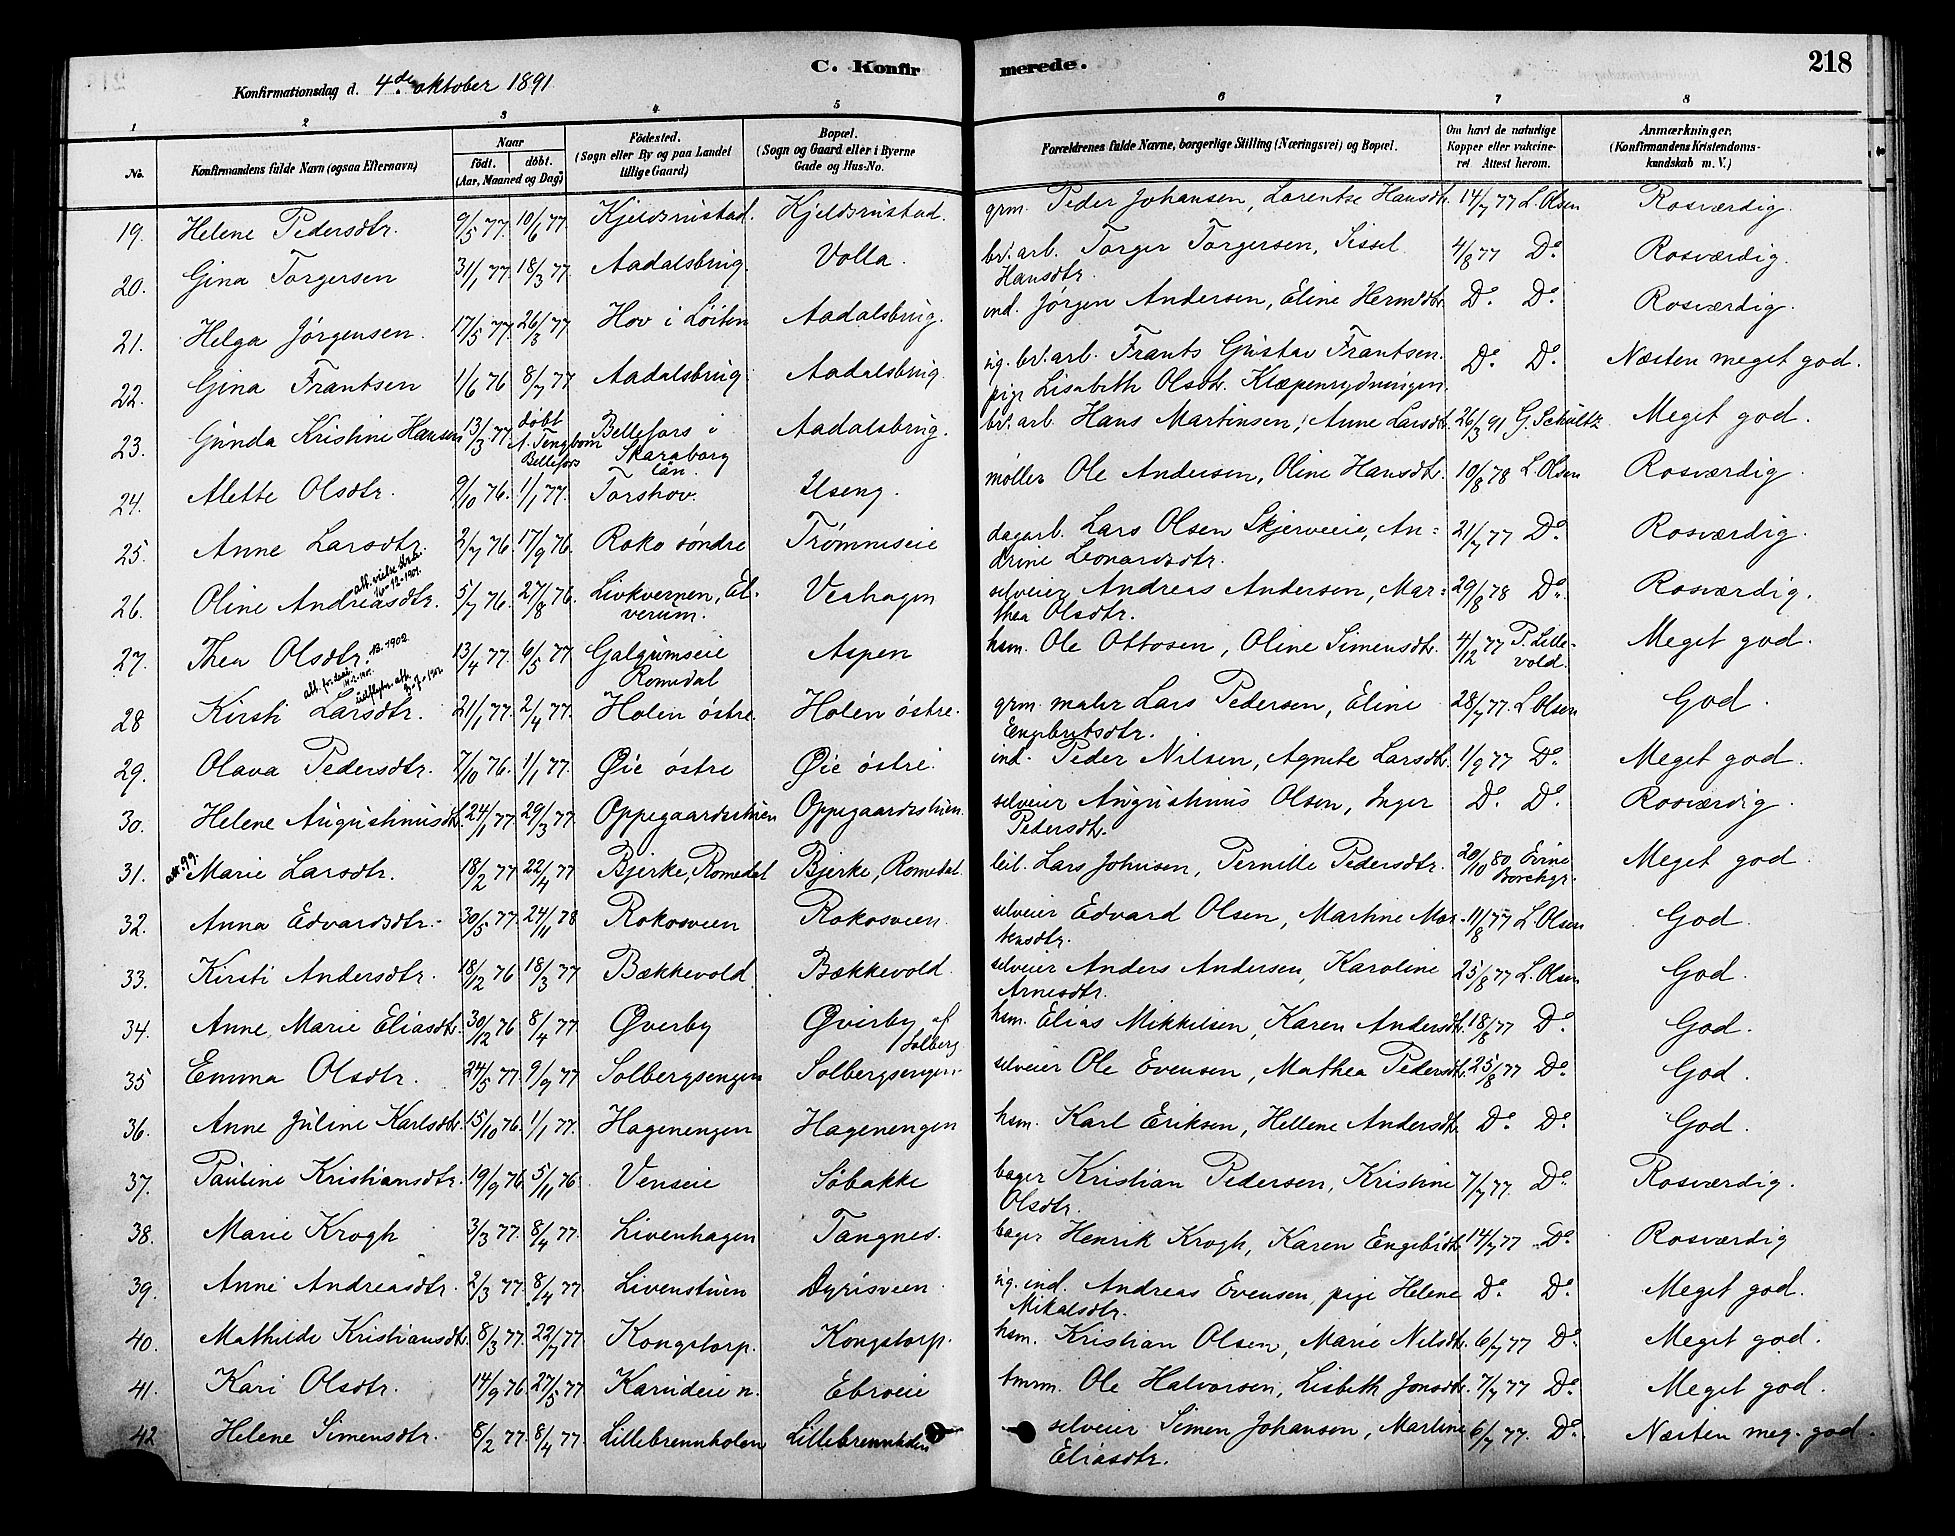 C. Konfirmerede.
218
Konfirmationsdag d. 4de oktober 1891
1 2 3 4 5 6 7 8
No. Konfirmandens fulde Navn (ogsaa Efternavn) Naar født. døbt. (Aar, Maaned og Dag) Fødested. (Sogn eller By og paa Landet tillige Gaard) Bopæl. (Sogn og Gaard eller i Byerne Gade og Hus-No. Forældrenes fulde Navne, borgerlige Stilling (Næringsvei) og Bopæl. Om havt de naturlige Kopper eller vakcineret Attest herom. Anmærkninger. (Konfirmandens Kristendomskundskab m. V.)
19. Helene Pedersdtr. 9/5 77. 10/6 77. Kjeldsrustad. Kjeldsrustad. grm. Peder Johansen, Lorentse Hansdtr. 14/7 77 L. Olsen Rosværdig.
20. Gina Torgersen 31/1 77. 18/3 77. Aadalsbrug. Volla. br. arb. Torger Torgersen, Sissel Hansdtr. 4/8 77 Do. Rosværdig.
21. Helga Jørgensen. 17/5 77. 26/8 77. Hov i Løiten Aadalsbrug. ind. Jørgen Andersen, Eline Hermdtr. Do. Do. Rosværdig.
22. Gina Frantsen 1/6 76 8/7 77 Aadalsbrug. Aadalsbrug. ug. br. arb. Frants Gustav Frantsen. pige Lisabeth Olsdtr. Klæpenrydningen. Do. Do. Næsten meget god.
23. Gunda Kristine Hansen 13/3 77. døbt A. Tengbom Bellefors Bellefors i Skaraborg län. Aadalsbrug. br. arb. Hans Martinsen, Anne Larsdtr. 26/3 91 G. Schultz Meget god.
24. Alette Olsdtr. 9/10 76. 1/1 77. Torshov. Ilseng. møller Ole Andersen, Oline Hansdtr. 10/8 78 L. Olsen Rosværdig
25. Anne Larsdtr. 2/7 76. 17/9 76. Roko søndre Trømniseie dagarb. Lars Olsen Skjerveie, Andrine Leonardsdtr. 21/7 77 Do. Rosværdig.
26. Oline Andreasdtr. 5/7 76. 27/8 76. Livkvernen, Elverum. Veahagen selveier Andreas Andersen, Marthea Olsdtr. 29/8 78 Do. Rosværdig.
27. Thea Olsdtr. 13/4 77. 6/5 77 Galgumseie Romedal Aspen hsm. Ole Ottosen, Oline Simensdtr. 4/12 77 P. Lillevold. Meget god.
28 Kirsti Larsdtr. 21/1 77. 2/4 77. Holen østre. Holen østre. grm. maler Lars Pedersen, Eline Engebretsdtr. 28/7 77. L. Olsen God.
29. Olava Pedersdtr. 7/10 76. 1/1 77. Øie østre Øie østre. ind. Peder Nilsen, Agnete Larsdtr. 1/9 77 Do. Meget god.
30. Helene Augustinusdtr. 24/1 77. 29/3 77 Oppegaardsstuen Oppegaardsstuen. selveier Augustinus Olsen, Inger Pedersdtr. Do. Do. Rosværdig.
31. Marie Larsdtr. 18/2 77 22/4 77 Bjerke, Romedal Bjerke, Romedal. leil. Lars Johnsen, Pernille Pedersdtr. 20/10 80 Meget god
32. Anna Edvardsdtr. 30/5 77. 24/11 78 Rokosveen Rokosveen. selveier Edvard Olsen, Martine Mortensdtr. 11/8 77 L. Olsen God
33. Kirsti Andersdtr. 18/12 76 18/3 77 Bækkevold. Bækkevold. selveier Anders Andersen, Karoline Arnesdtr. 25/8 77 L. Olsen God.
34. Anne Marie Eliasdtr. 30/12 76 8/4 77. Øverby Øverby af Solberg. hsm. Elias Mikkelsen, Karen Andersdtr. 18/8 77 Do. God.
35 Emma Olsdtr. 24/5 77. 9/9 77 Solbergsengen Solbergsengen. selveier Ole Evensen, Mathea Pedersdtr. 25/8 77 Do. God.
36. Anne Juline Karlsdtr. 15/10 76. 1/1 77. Hagenengen Hagenengen hsm. Karl Eriksen, Hellene Andersdtr. Do. Do. God.
37. Pauline Kristiansdtr. 19/9 76. 5/11 76. Venseie Søbakke bager Kristian Pedersen, Kristine Olsdtr. 7/7 77. Do. Rosværdig.
38. Marie Krogh 3/3 77. 8/4 77. Livenhagen Tangnes. bager Henrik Krogh, Karen Engebrdtr. 14/7 77 Do. Rosværdig
39. Anne Andreasdtr. 2/3 77. 8/4 77 Livenstuen Dyrisveen. ug. ind. Andreas Evensen, pige Helene Mikalsdtr. Do. Do. Meget god.
40. Mathilde Kristiansdtr. 8/3 77. 22/7 77 Kongstorp. Kongstorp. hsm. Kristian Olsen, Marie Nilsdtr. 6/7 77 Do. Meget god.
41. Kari Olsdtr. 14/9 76. 27/5 77 Karudeie n. Ebroeie tmrm. Ole Halvorsen, Lisbeth Jonsdtr. 7/7 77 Do. Meget god.
42 Helene Simensdtr. 8/2 77. 8/4 77. Lillebrennholen Lillebrennholen selveier Simen Johansen, Martine Eliasdtr. 6/7 77. Do. Næsten meg. god.